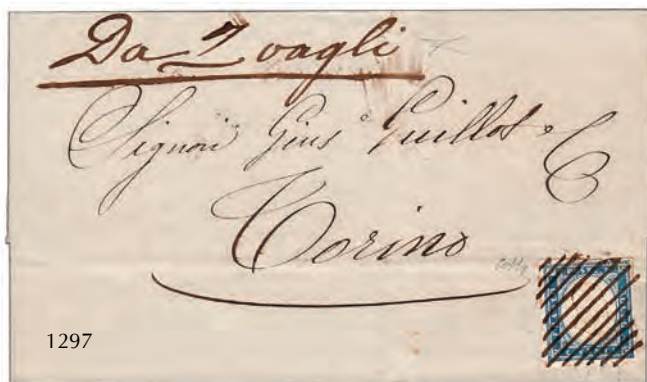 Da Zoagli
Signori Gius.e Guillot e C
Torino
1297